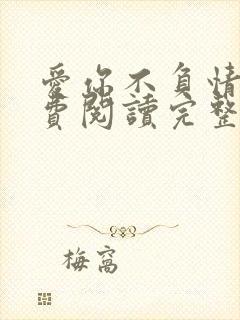 愛你不負情
費閱讀完整
梅窩